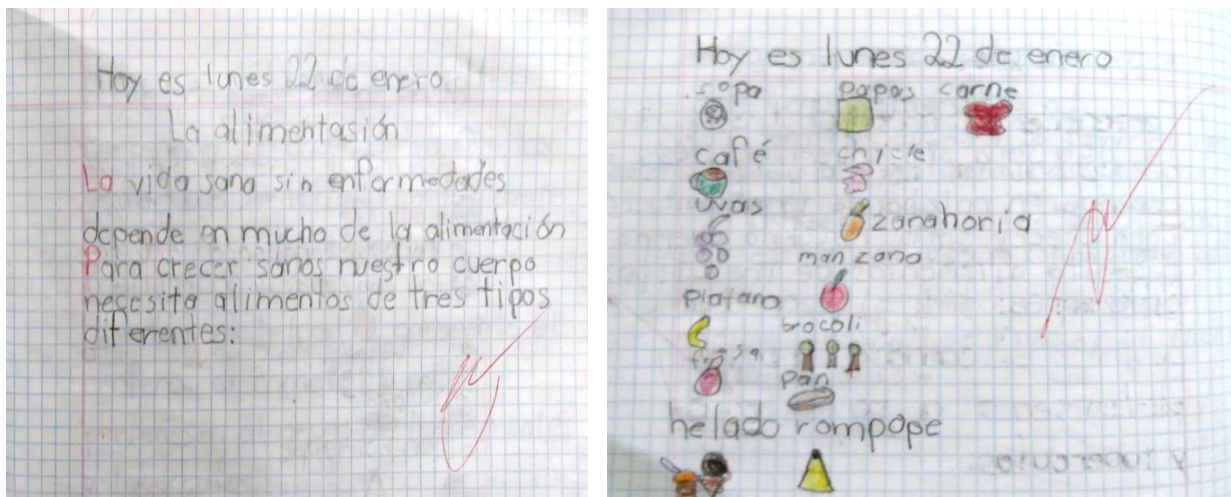 Hoy es lunes 22 de enero
La alimentasión
La vida sana sin enfermedades
depende en mucho de la alimentación
Para crecer sanos nuestro cuerpo
necesita alimentos de tres tipos
diferentes:
Hoy es lunes 22 de enero
sopa papas carne
café chicle
uvas zanahoria
manzana
platano
brocoli
fresa
pan
helado rompope